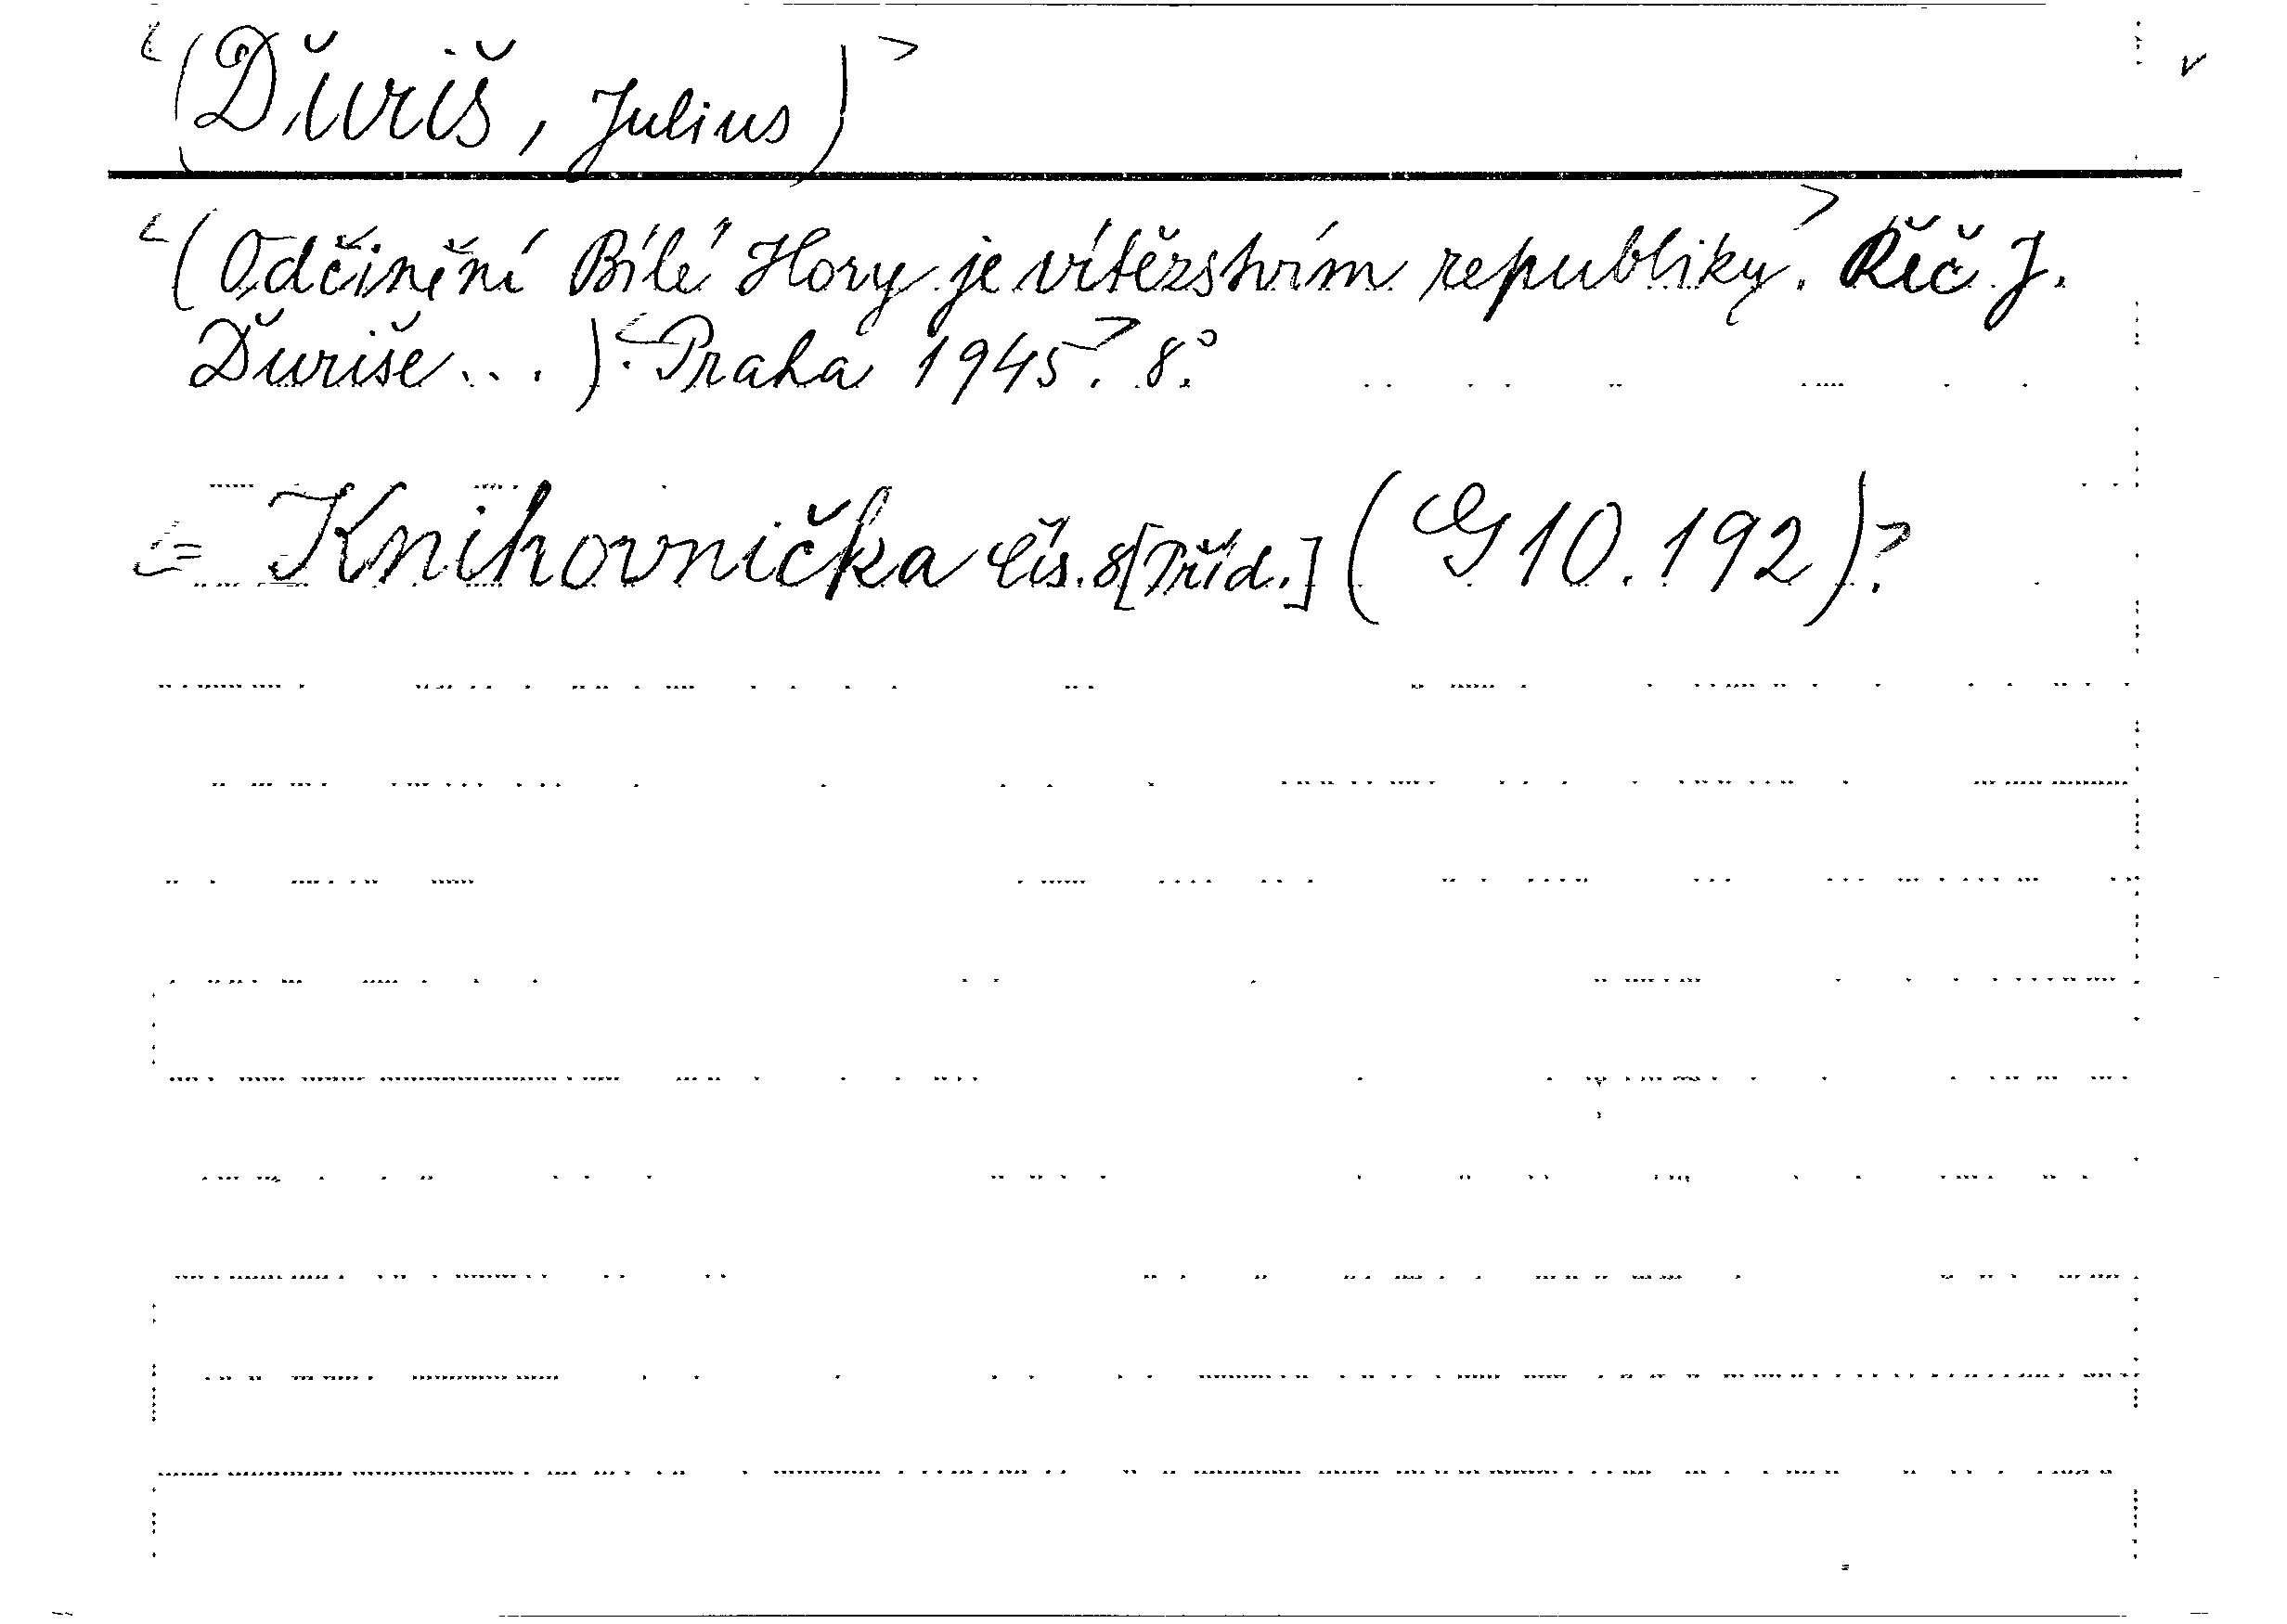 <(Ďuriš, Julius)>
<(Odčinění Bílé Hory je vítězstvím republiky.> Řeč J.
Ďuriše...). <Praha 1945>. 8°.
<= Knihovnička čís. 8 [Příd.] (G 10.192)>.